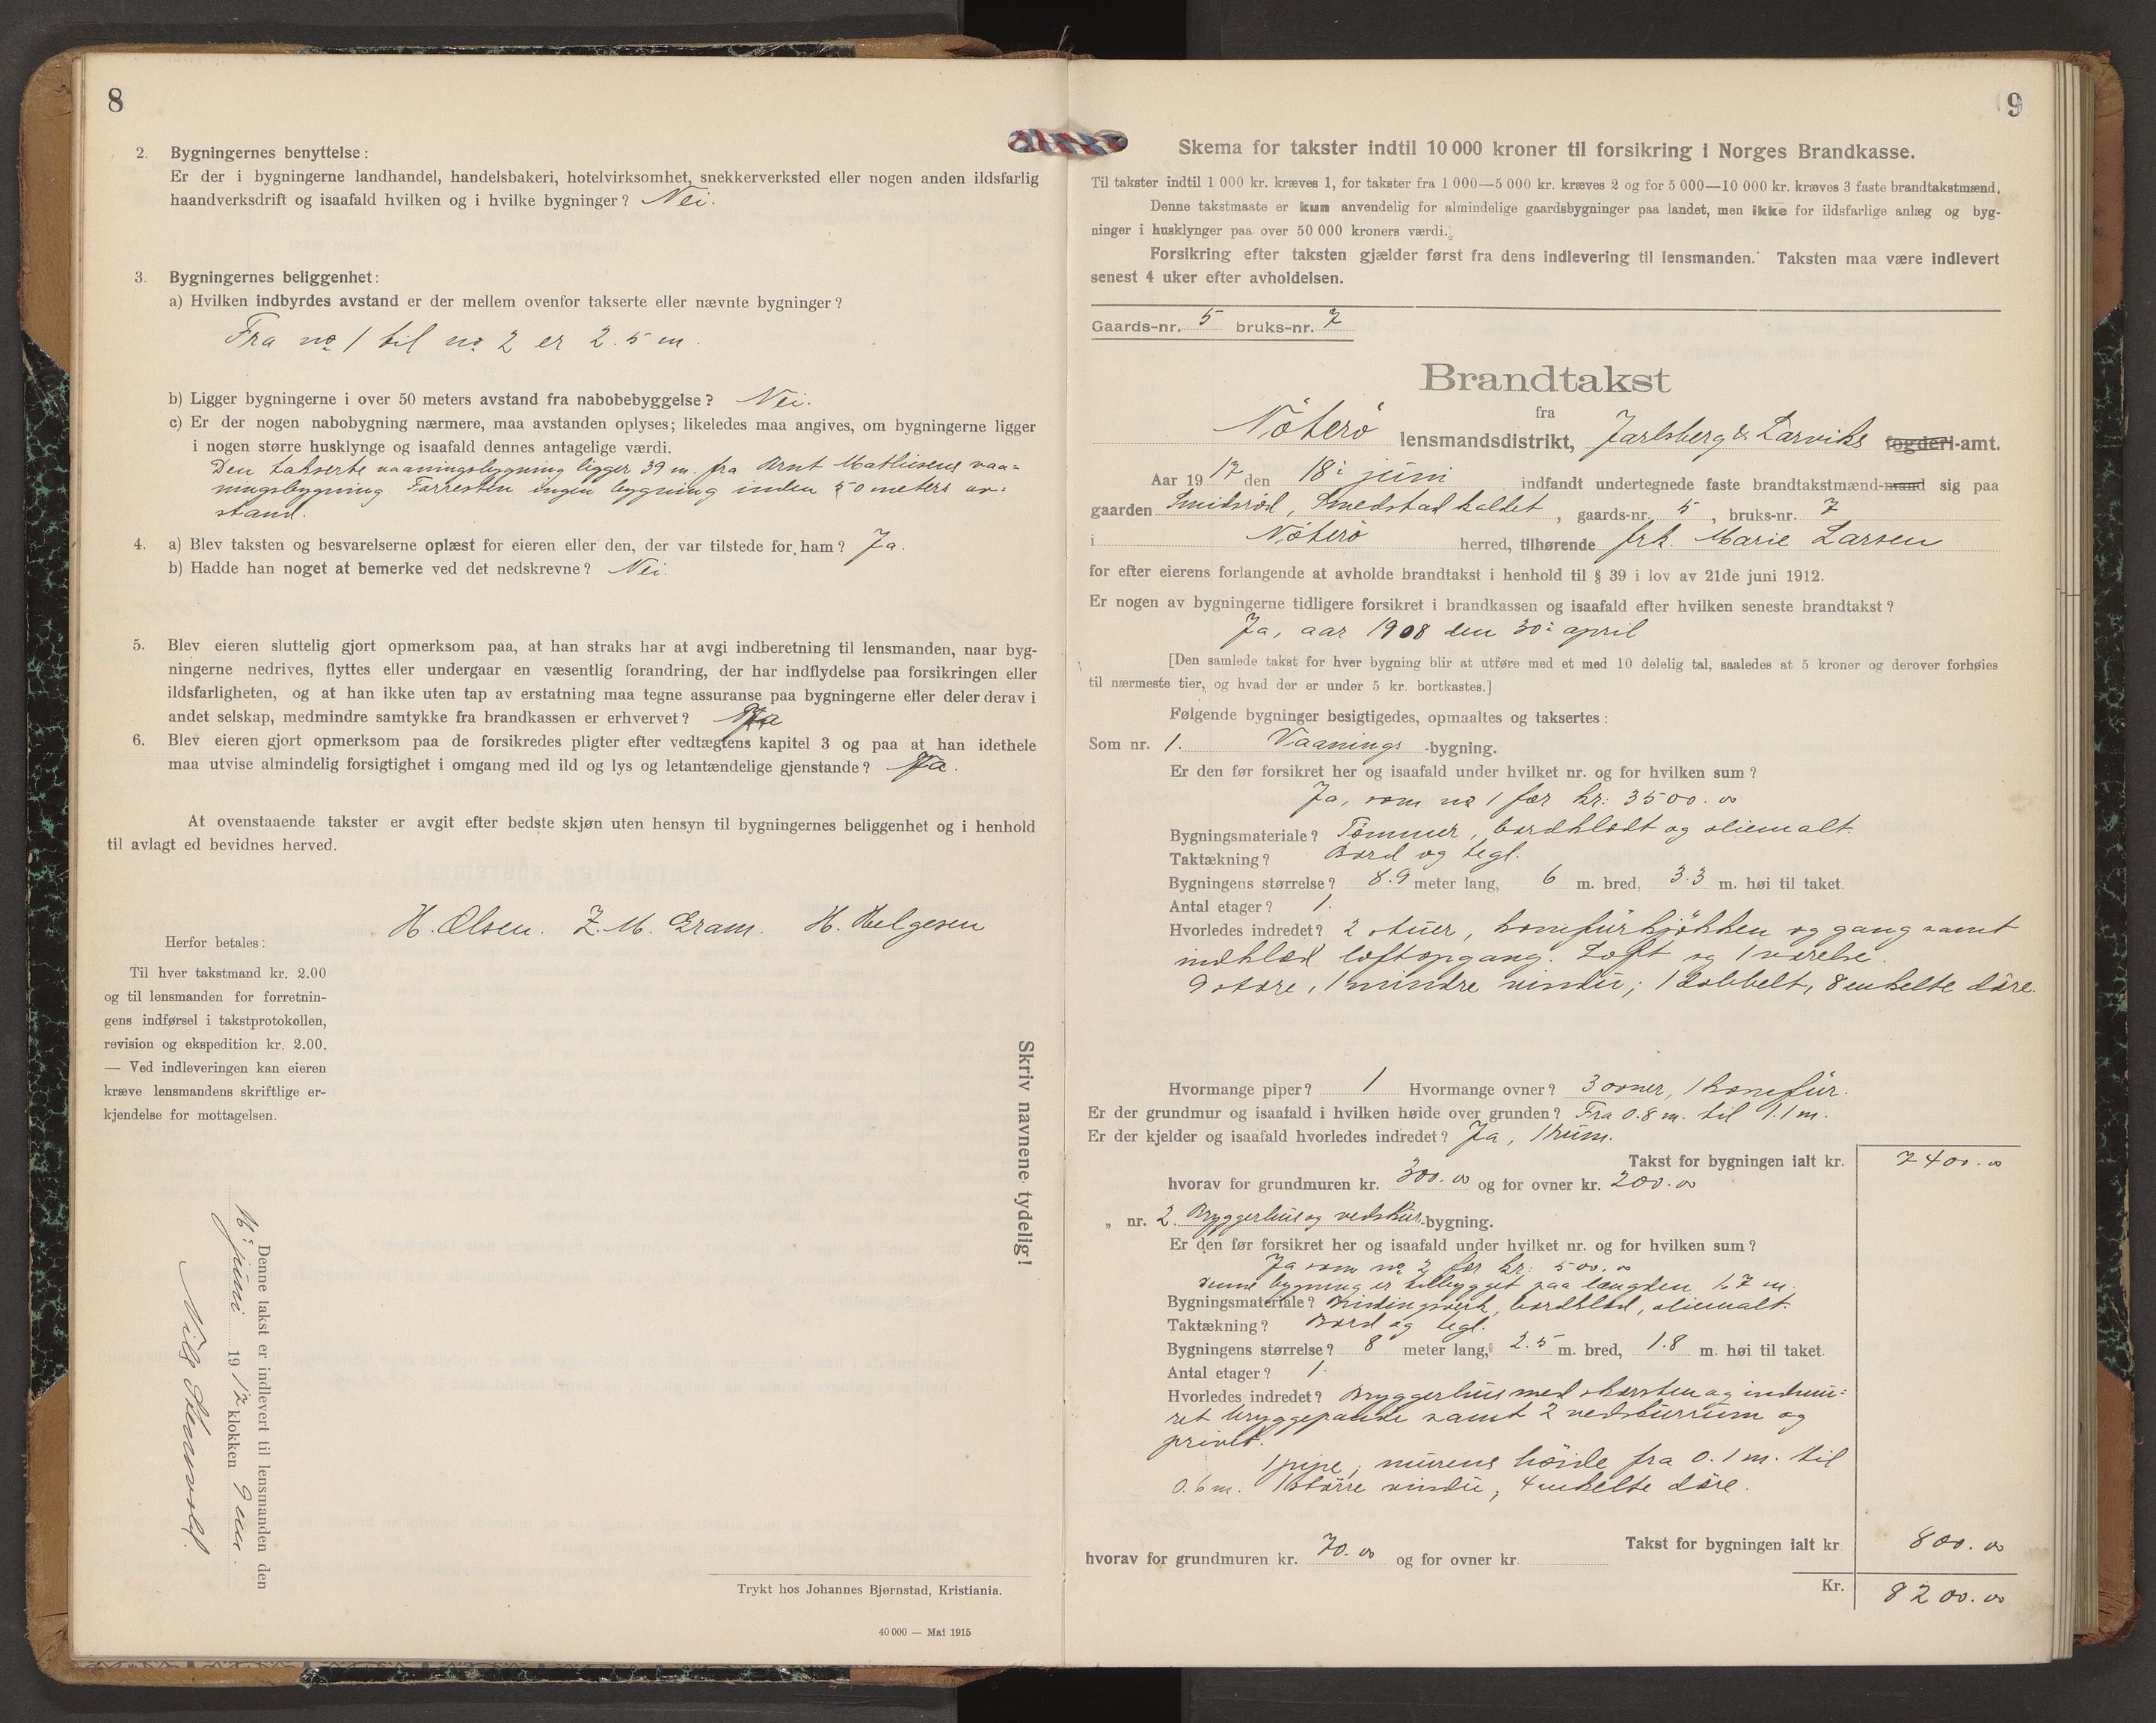 8
2. Bygningernes benyttelse:
Er der i bygningerne landhandel, handelsbakeri, hotelvirksomhet, snekkerverksted eller nogen anden ildsfarlig
haandverksdrift og isaafald hvilken og i hvilke bygninger? Nei.
3. Bygningernes beliggenhet:
a) Hvilken indbyrdes avstand er der mellem ovenfor takserte eller nævnte bygninger?
Fra no 1 til no 2 er 2.5 m.
b) Ligger bygningerne i over 50 meters avstand fra nabobebyggelse? Nei.
c) Er der nogen nabobygning nærmere, maa avstanden oplyses; likeledes maa angives, om bygningerne ligger
i nogen større husklynge og isaafald dennes antagelige værdi.
Den takserte vaaningsbygning ligger 39 m. fra Arnt Mathisens vaa=
ningsbygning. Forresten ingen bygning inden 50 meters av=
stand.
4. a) Blev taksten og besvarelserne oplæst for eieren eller den, der var tilstede for ham? Ja.
b) Hadde han noget at bemerke ved det nedskrevne? Nei.
5. Blev eieren sluttelig gjort opmerksom paa, at han straks har at avgi indberetning til lensmanden, naar byg-
ningerne nedrives, flyttes eller undergaar en væsentlig forandring, der har indflydelse paa forsikringen eller
ildsfarligheten, og at han ikke uten tap av erstatning maa tegne assuranse paa bygningerne eller deler derav i
andet selskap, medmindre samtykke fra brandkassen er erhvervet? Ja
6. Blev eieren gjort opmerksom paa de forsikredes pligter efter vedtægtens kapitel 3 og paa at han idethele
maa utvise almindelig forsigtighet i omgang med ild og lys og letantændelige gjenstande? Ja.
At ovenstaaende takster er avgit efter bedste skjøn uten hensyn til bygningernes beliggenhet og i henhold
til avlagt ed bevidnes herved.
H. Olsen. Z. M. Gram. H. Helgesen
Herfor betales:
Til hver takstmand kr. 2.00
og til lensmanden for forretnin-
gens indførsel i takstprotokollen,
revision og ekspedition kr. 2.00.
— Ved indleveringen kan eieren
kræve lensmandens skriftlige er-
kjendelse for mottagelsen.
Skriv navnene tydelig!
Denne takst er indlevert til lensmanden den
juni 1917 klokken 9
Nils
Trykt hos Johannes Bjørnstad, Kristiania.
40 000 — Mai 1915
9
Skema for takster indtil 10 000 kroner til forsikring i Norges Brandkasse.
Til takster indtil 1 000 kr. kræves 1, for takster fra 1 000—5 000 kr. kræves 2 og for 5 000—10 000 kr. kræves 3 faste brandtakstmænd,
Denne takstmaate er kun anvendelig for almindelige gaardsbygninger paa landet, men ikke for ildsfarlige anlæg og byg-
ninger i husklynger paa over 50 000 kroners værdi.
Forsikring efter taksten gjælder først fra dens indlevering til lensmanden. Taksten maa være indlevert
senest 4 uker efter avholdelsen.
Gaards-nr. 5 bruks-nr. 7
Brandtakst
fra
Nöterö lensmandsdistrikt, Jarlsberg & Larviks fogderi-amt.
Aar 1917 den 18i juni indfandt undertegnede faste brandtakstmænd-mand sig paa
gaarden Smidsröd, Smedstad kaldet, gaards-nr. 5, bruks-nr. 7
i Nöterö herred, tilhørende frk. Marie Larsen
for efter eierens forlangende at avholde brandtakst i henhold til § 39 i lov av 21de juni 1912.
Er nogen av bygningerne tidligere forsikret i brandkassen og isaafald efter hvilken seneste brandtakst?
Ja, aar 1908 den 30i april
[Den samlede takst for hver bygning blir at utføre med et med 10 delelig tal, saaledes at 5 kroner og derover forhøies
til nærmeste tier, og hvad der er under 5 kr. bortkastes.]
Følgende bygninger besigtigedes, opmaaltes og taksertes:
Som nr. 1. Vaanings-bygning.
Er den før forsikret her og isaafald under hvilket nr. og for hvilken sum?
Ja, som no 1 for kr: 3500.00
Bygningsmateriale? Tömmer, bordklædt og oliemalt.
Taktækning? Bord og tegl.
Bygningens størrelse? 8.9 meter lang, 6 m. bred, 3.3 m. høi til taket.
Antal etager? 1.
Hvorledes indredet? 2 stuer, komfürkjökken og gang samt
indklæd loftopgang. Loft og 1 værelse.
9 store, 1 mindre vindu; 1 dobbelt, 8 enkelte döre.
Hvormange piper? 1 Hvormange ovner? 3 ovner, 1 komfür.
Er der grundmur og isaafald i hvilken høide over grunden? Fra 0.8 m. til 1.1 m.
Er der kjelder og isaafald hvorledes indredet? Ja, 1 rüm.
Takst for bygningen ialt kr. 7400.00
hvorav for grundmuren kr. 300.00 og for ovner kr. 200.00
„ nr. 2. Bryggerhus og vedskur-bygning.
Er den før forsikret her og isaafald under hvilket nr. og for hvilken sum?
Ja som no 2 for kr: 500.00
denne bygning er tilbygget paa længden 1.7 m.
Bygningsmateriale? Bindingsverk, bordklæd, oliemalt.
Taktækning? Bord og tegl.
Bygningens størrelse? 8 meter lang, 2.5 m. bred, 1.8 m. høi til taket.
Antal etager? 1.
Hvorledes indredet? Bryggerhus med skorsten og indmu=
ret bryggepande samt 2 vedskurrum og
privet.
1 pipe, murens höide fra 0.1 m. til
0.6 m. 1 större vindu, 4 enkelte döre.
Takst for bygningen ialt kr 800.00
hvorav for grundmuren kr. 70.00 og for ovner kr.
Kr. 8200.00